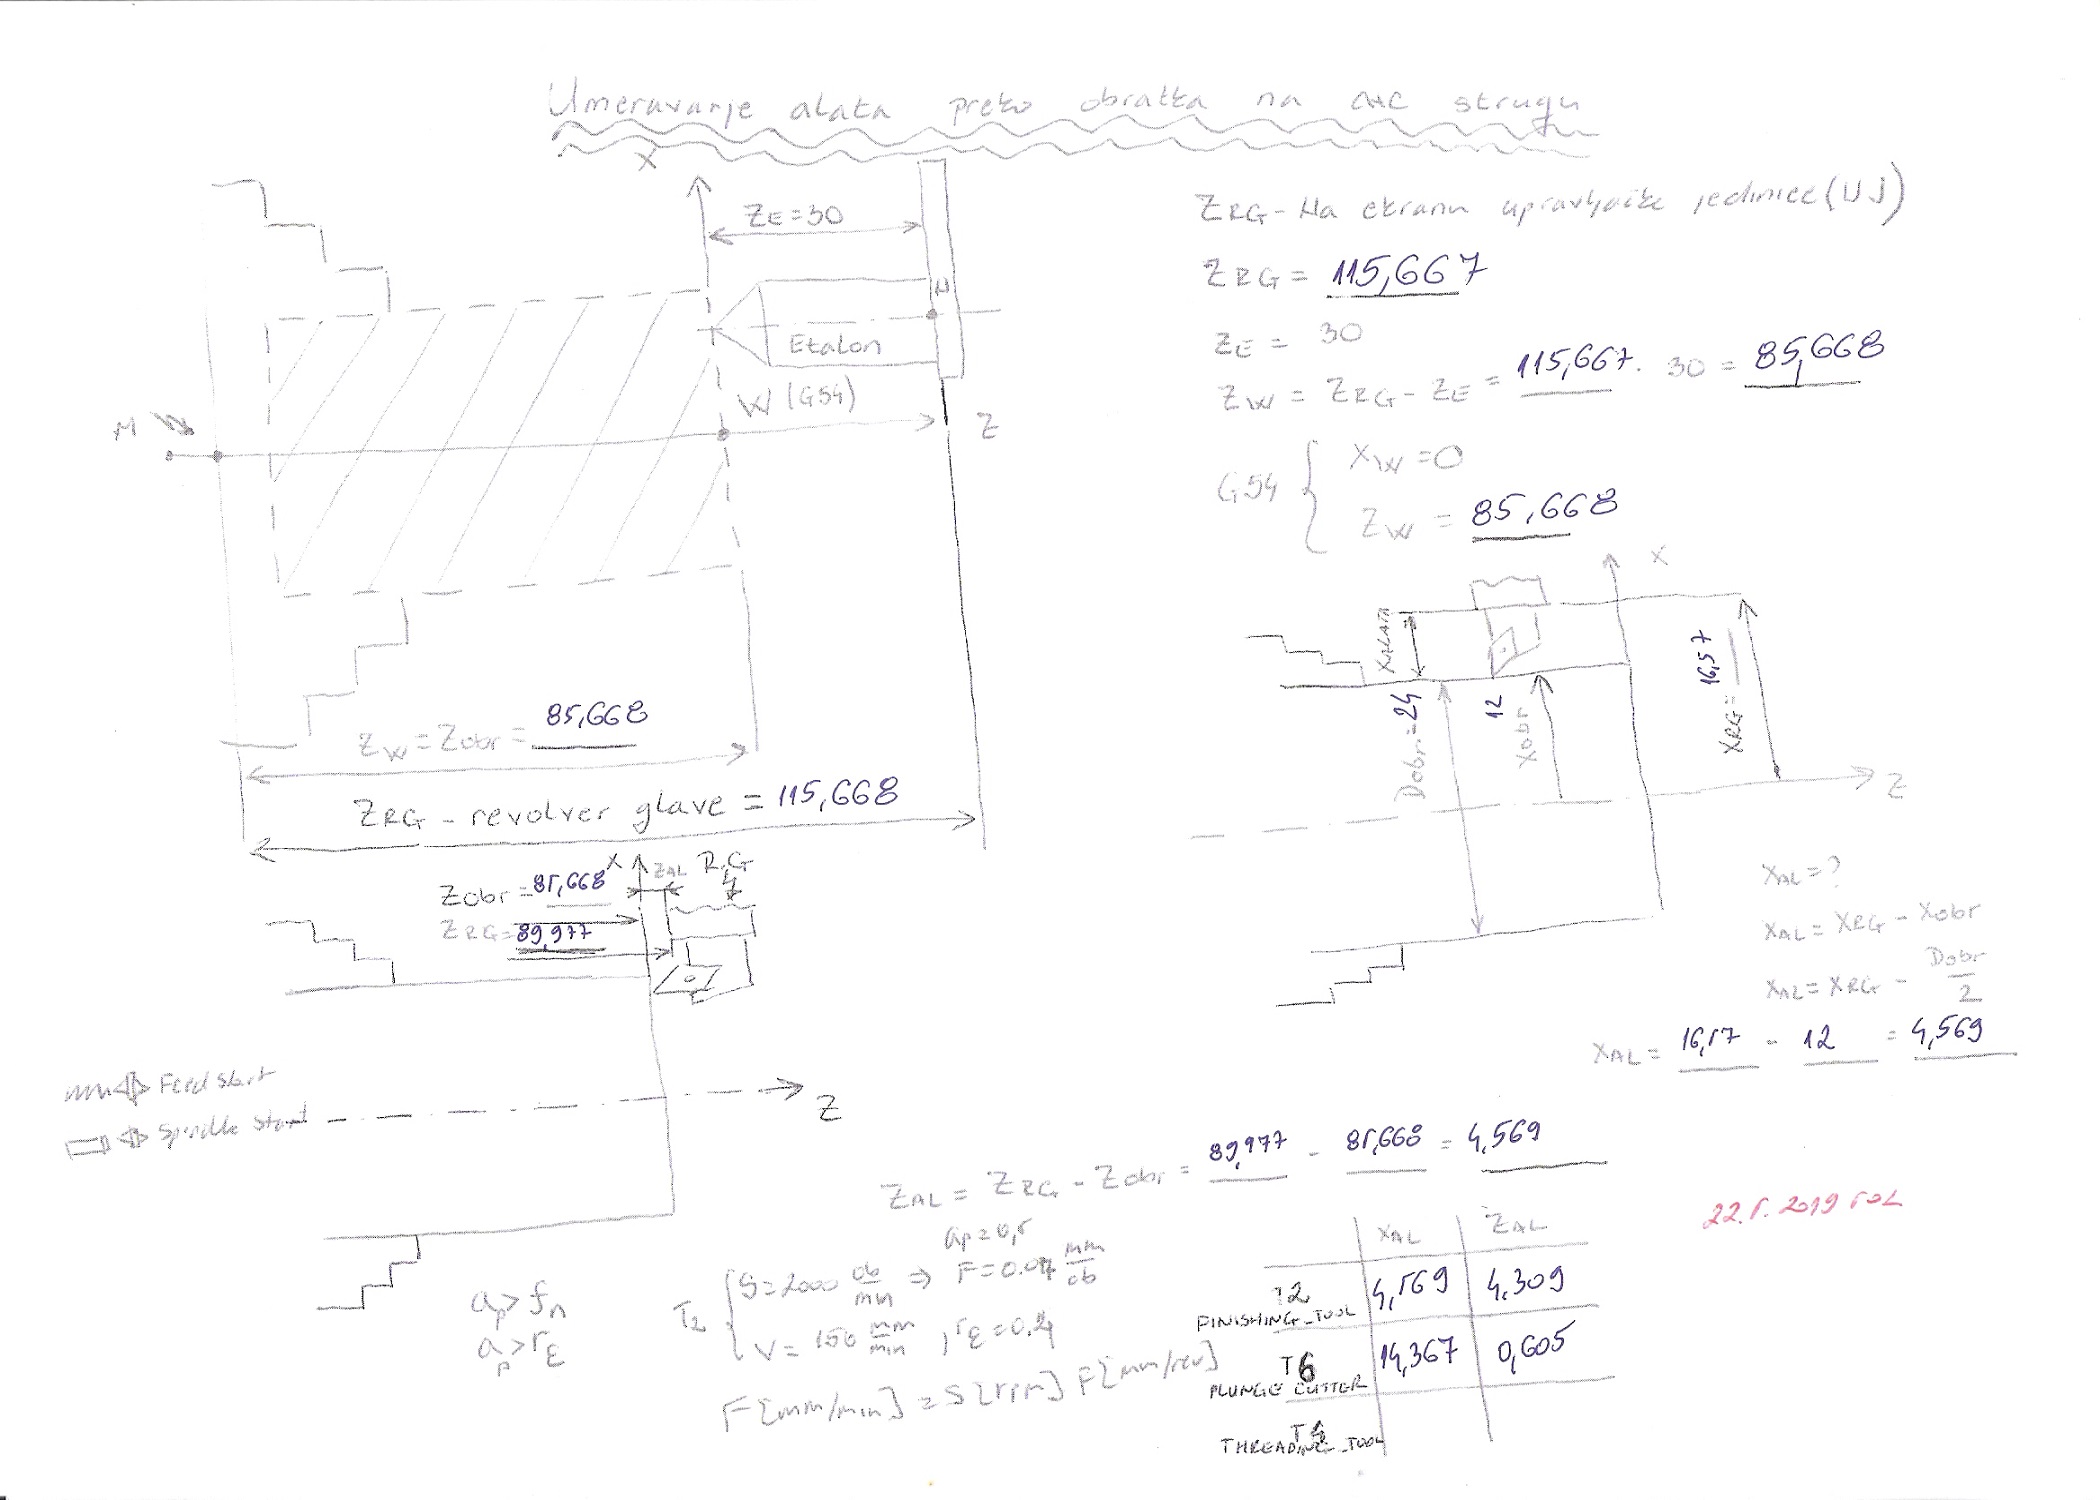 Umeravanje alata preko obratka na CNC strugu
X
ZE = 30
N
Etalon
W (G54)
M
Z
ZW = Zobr = 85,668
ZRG - revolver glave = 115,668
ZRG - Na ekranu upravljačke jedinice (UJ)
ZRG = 115,667
ZE = 30
ZW = ZRG - ZE = 115,667. 30 = 85,668
G54 { XW = 0
ZW = 85,668
X
XALATA
Dobr. = 24
12
Xobr
XRG = 16,57
Z
XAL = ?
XAL = XRG - Xobr
XAL = XRG - Dobr/2
XAL = 16,57 - 12 = 4,569
X ZAL R.G
Zobr = 85,668
ZRG = 89,977
Feed start
Spindle start
Z
ZAL = ZRG - Zobr. = 89,977 - 85,668 = 4,569
ap = 0,5
T2 { S = 2000 ob/min ⇒ F = 0.04 mm/ob
V = 150 mm/min , rε = 0.4
F [mm/min] = S [rpm] F [mm/rev]
ap > fn
ap > rε
22.5.2019 god
XAL ZAL
T2 FINISHING_TOOL 4,569 4,309
T6 PLUNGE CUTTER 14,367 0,605
THREADING_TOOL